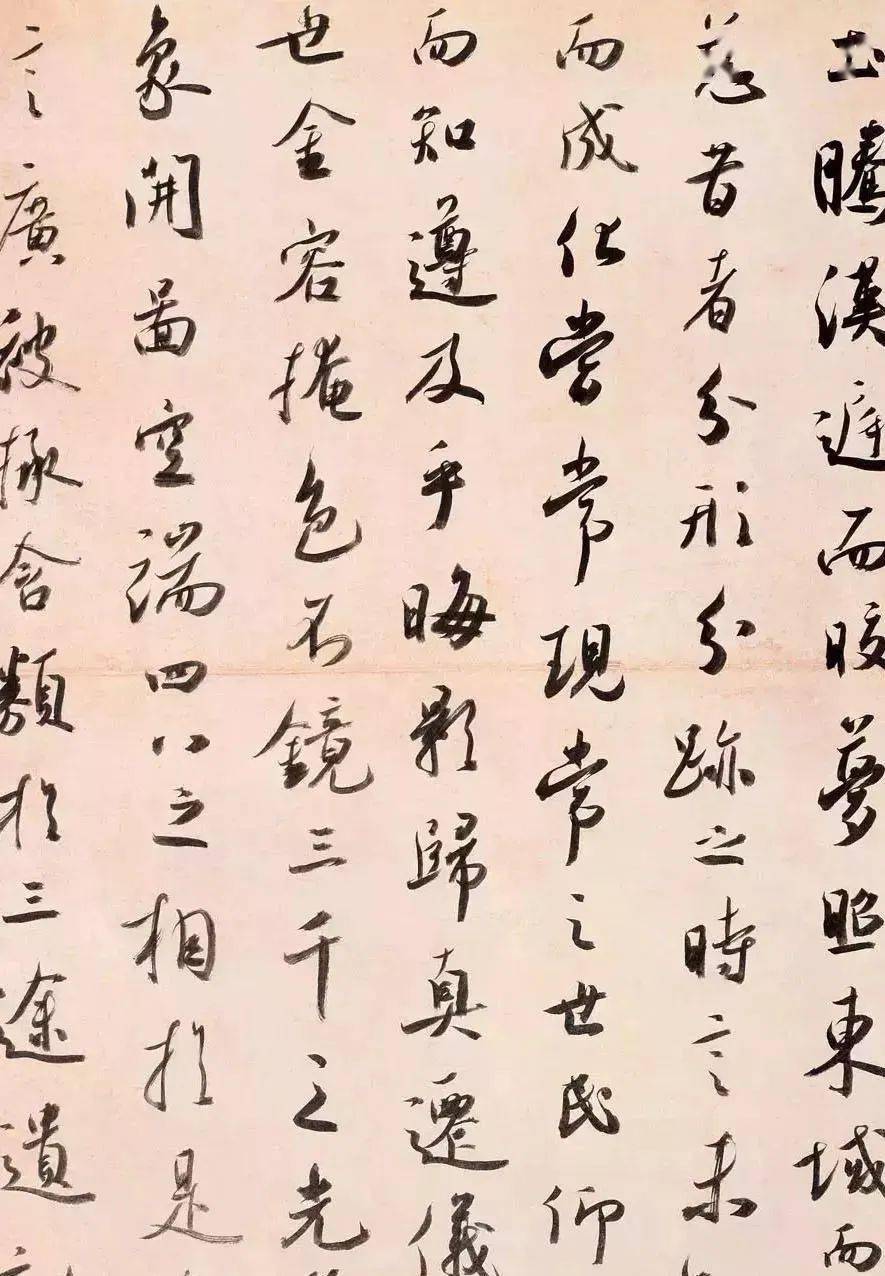 土騰漢庭而晈夢照東域而
慈昔者分形分跡之時言未
而成化當常現常之世民仰
而知遵及乎晦影歸真遷儀
世金容掩色不鏡三千之光
象開圖空端四八之相於是
言廣被拯含類於三途遺